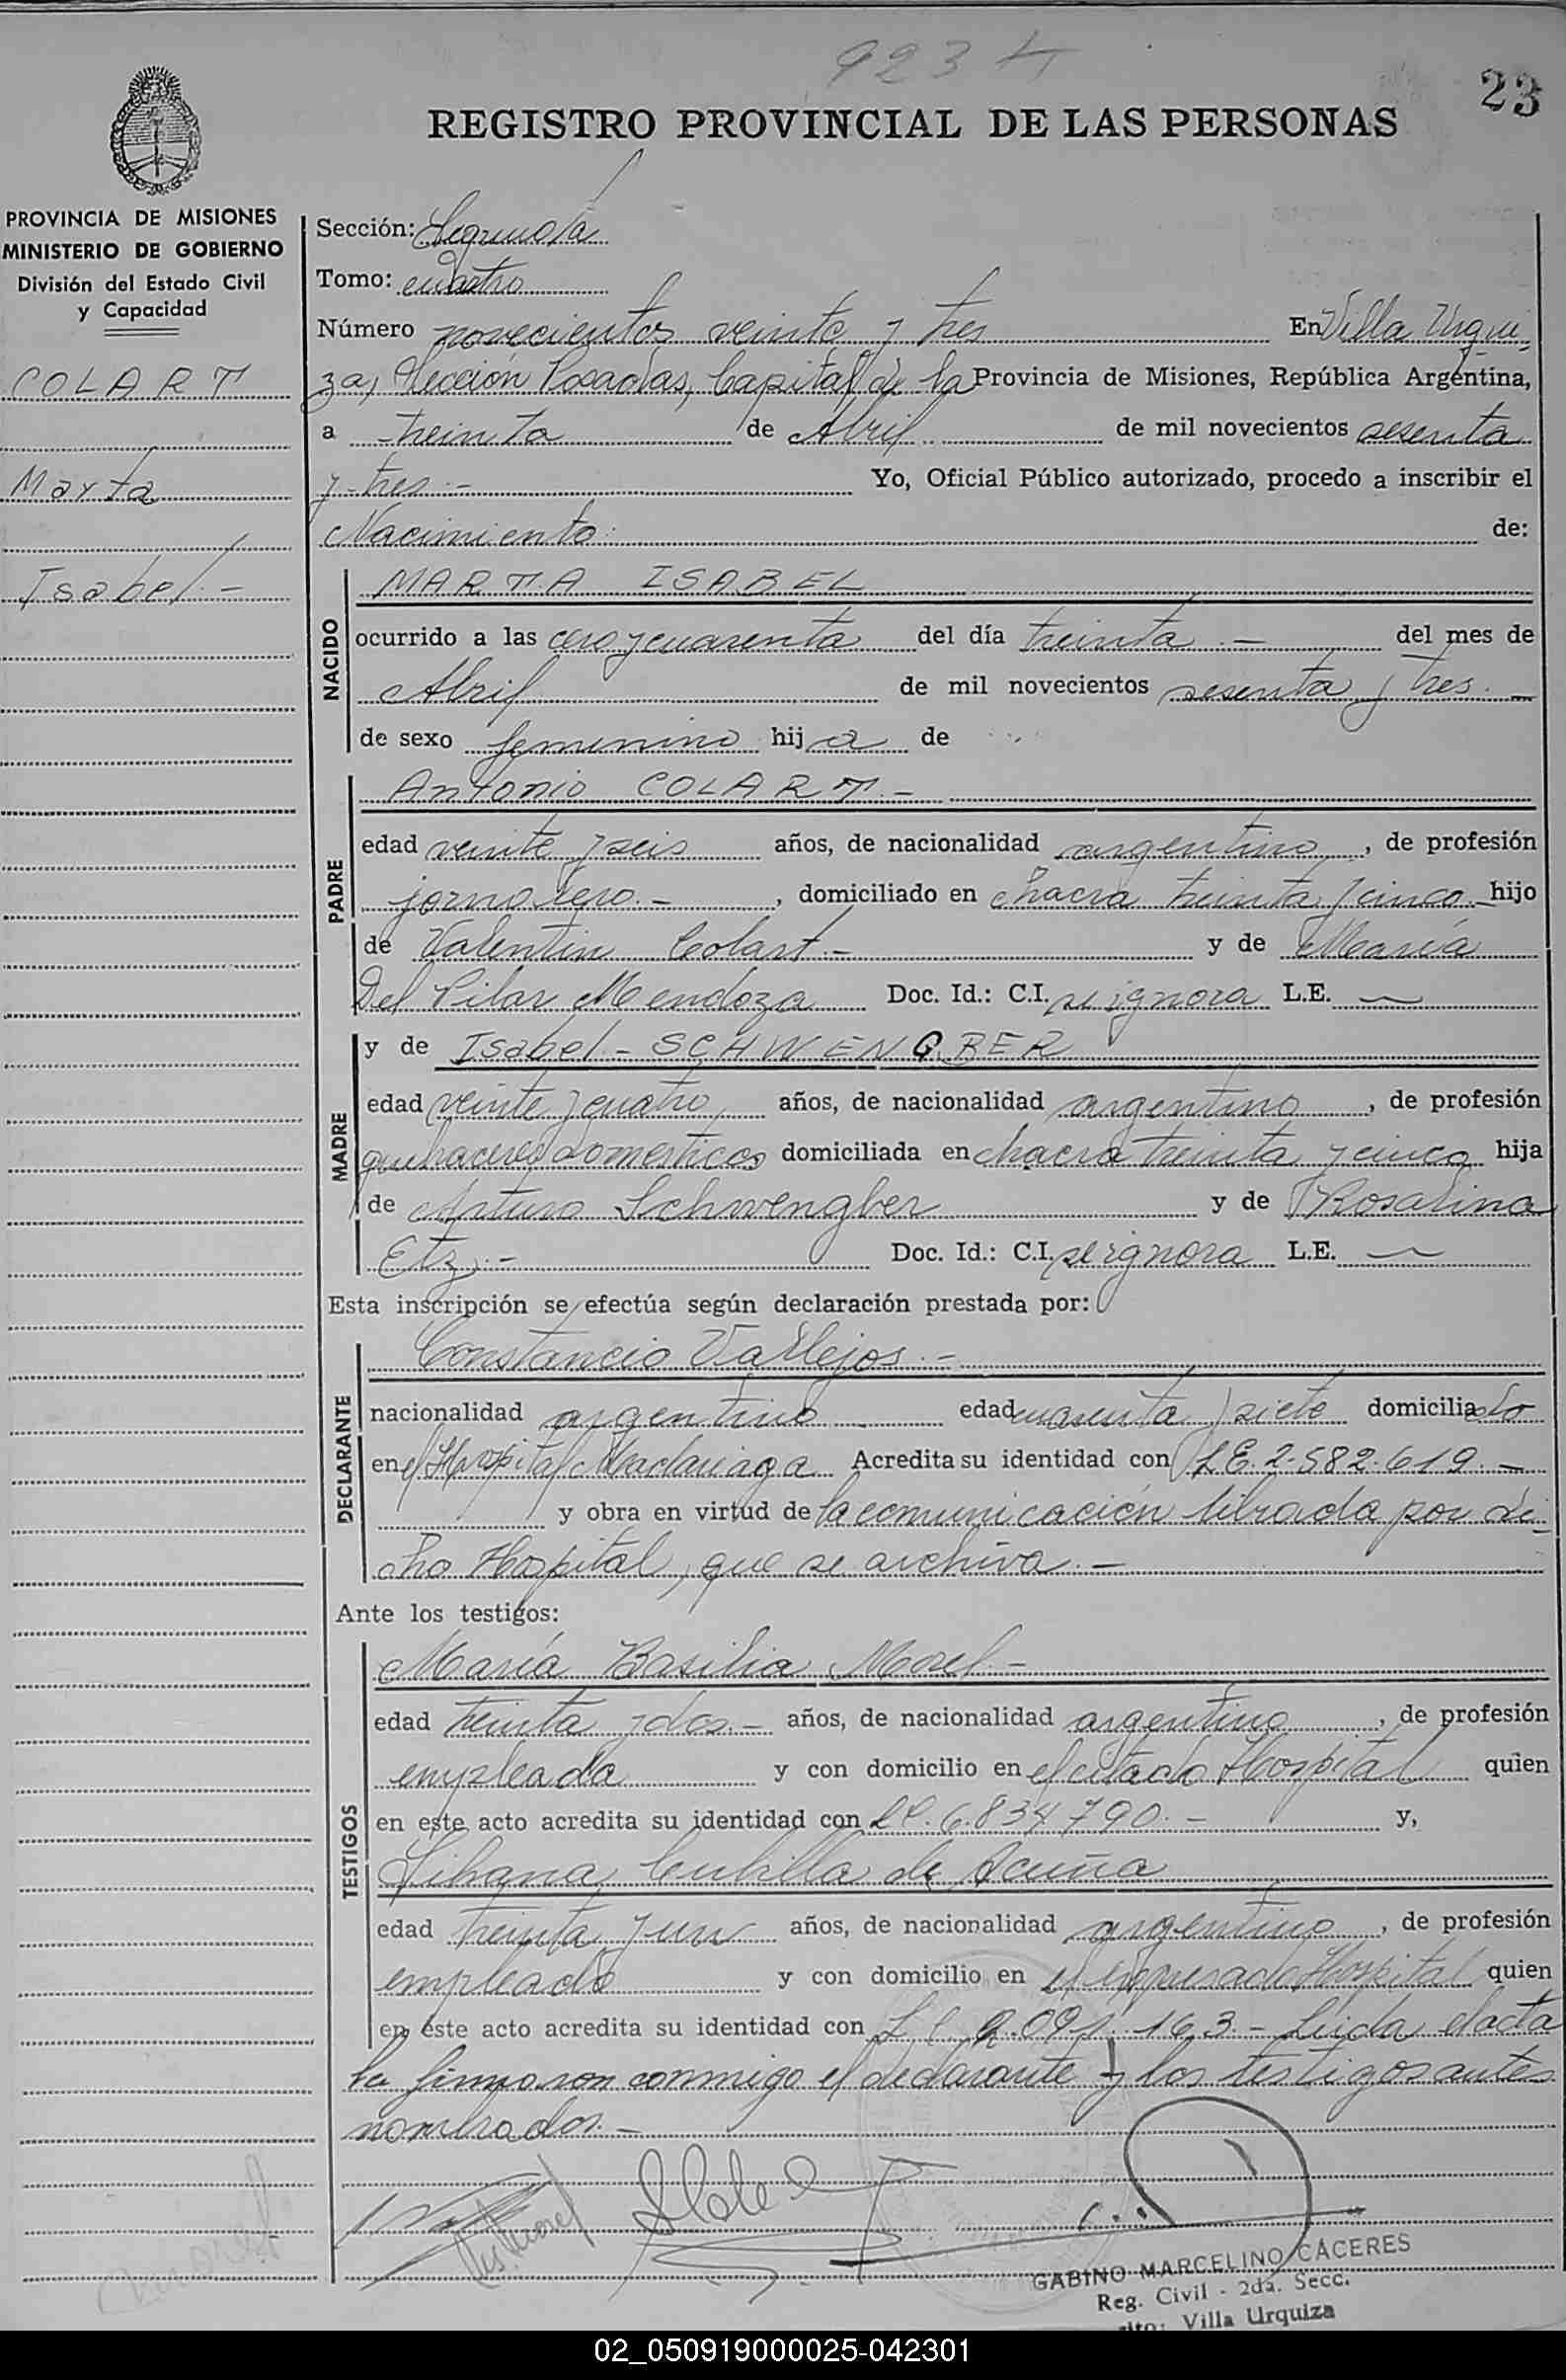 923
23
REGISTRO PROVINCIAL DE LAS PERSONAS
PROVINCIA DE MISIONES
MINISTERIO DE GOBIERNO
División del Estado Civil
y Capacidad
COLART
Marta
Isabel.-
Sección: Segunda
Tomo: cuarto
Número novecientos veinte y tres En Villa Urqui-
za, Sección Posadas, Capital de la Provincia de Misiones, República Argentina,
a treinta de Abril de mil novecientos sesenta
y tres.- Yo, Oficial Público autorizado, procedo a inscribir el
Nacimiento de:
NACIDO
MARTA ISABEL
ocurrido a las cero y cuarenta del día treinta.- del mes de
Abril de mil novecientos sesenta y tres.-
de sexo femenino hija de
PADRE
Antonio COLART.-
edad veinte y seis años, de nacionalidad argentino, de profesión
jornalero.-, domiciliado en chacra treinta y cinco hijo
de Valentin Colart.- y de María
Del Pilar Mendoza Doc. Id.: C.I. se ignora L.E. —
MADRE
y de Isabel - SCHWENGBER
edad veinte y cuatro años, de nacionalidad argentino, de profesión
quehaceres domesticos domiciliada en chacra treinta y cinco hija
de Arturo Schwengber y de Rosalina
Etz.- Doc. Id.: C.I. se ignora L.E. —
Esta inscripción se efectúa según declaración prestada por:
DECLARANTE
Constancio Vallejos.-
nacionalidad argentino edad cuarenta y siete domiciliado
en el Hospital Madariaga Acredita su identidad con LE.2.582.619.-
y obra en virtud de la comunicación librada por di-
cho Hospital, que se archiva.-
Ante los testigos:
TESTIGOS
María Basilia Morel.-
edad treinta y dos.- años, de nacionalidad argentino, de profesión
empleada y con domicilio en el citado Hospital quien
en este acto acredita su identidad con LC.6.834.790.- y,
Cubilla de Acuña
edad treinta y un años, de nacionalidad argentino, de profesión
empleado y con domicilio en el expresado Hospital quien
en éste acto acredita su identidad con 163.- Leida el acta
la firmaron conmigo el declarante y los testigos antes
nombrados.-
GABINO MARCELINO CÁCERES
Reg. Civil - 2da. Secc.
Villa Urquiza
02_050919000025-042301